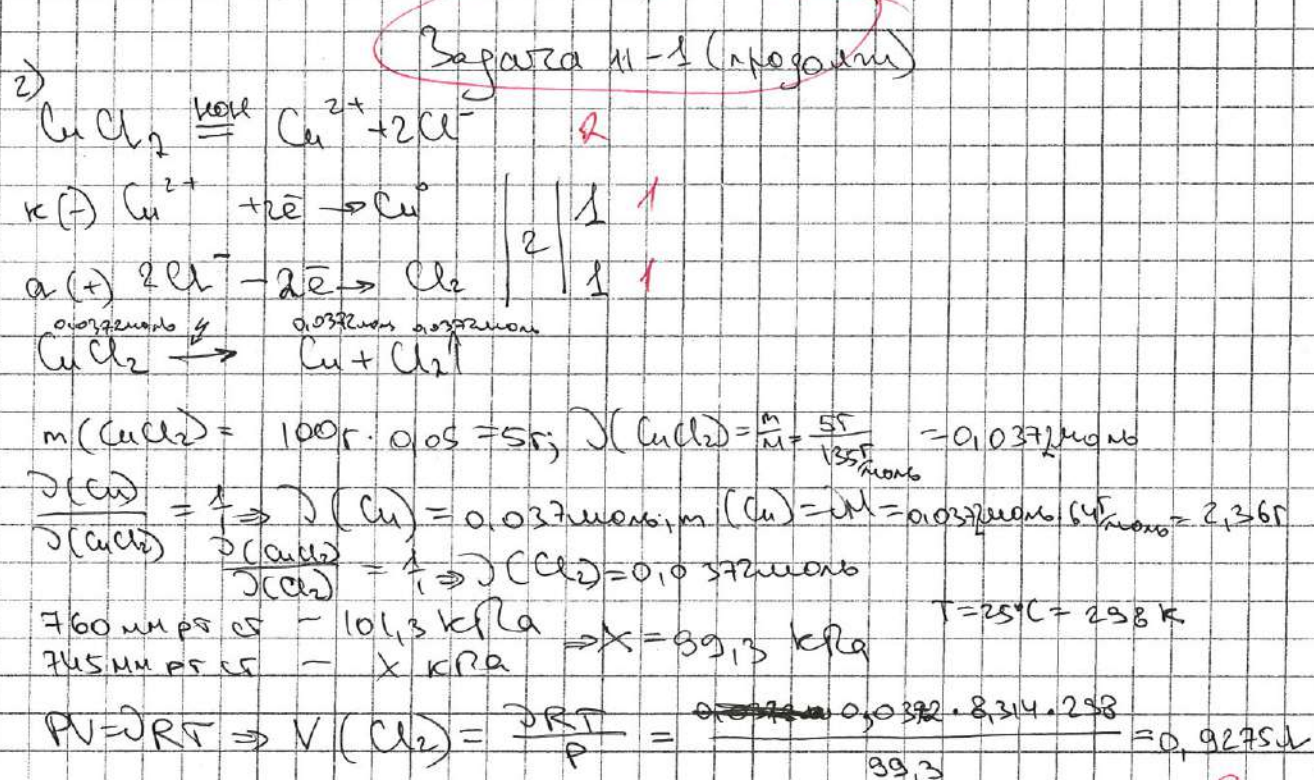 Задача 11-1 (продолж)
2)
CuCl₂ =кон= Cu²⁺ + 2Cl⁻ 2
к(-) Cu²⁺ +2ē → Cu⁰ | 2 | 1 1
a(+) 2Cl⁻ - 2ē → Cl₂ | | 1 1
0,0372моль 0,0372моль 0,0372моль
CuCl₂ → Cu + Cl₂↑
m(CuCl₂) = 100г · 0,05 = 5г; ν(CuCl₂) = m/M = 5г/135г/моль = 0,0372моль
ν(Cu)/ν(CuCl₂) = 1/1 ⇒ ν(Cu) = 0,037моль; m(Cu) = νM = 0,0372моль·64г/моль = 2,36г
ν(CuCl₂)/ν(Cl₂) = 1/1 ⇒ ν(Cl₂) = 0,0372моль
760 мм рт ст - 101,3 kPa
745 мм рт ст - X kPa ⇒ X = 99,3 kPa
T = 25°C = 298 K
PV = νRT ⇒ V(Cl₂) = νRT/P = 0,0372 · 8,314 · 298/99,3 = 0,9275л